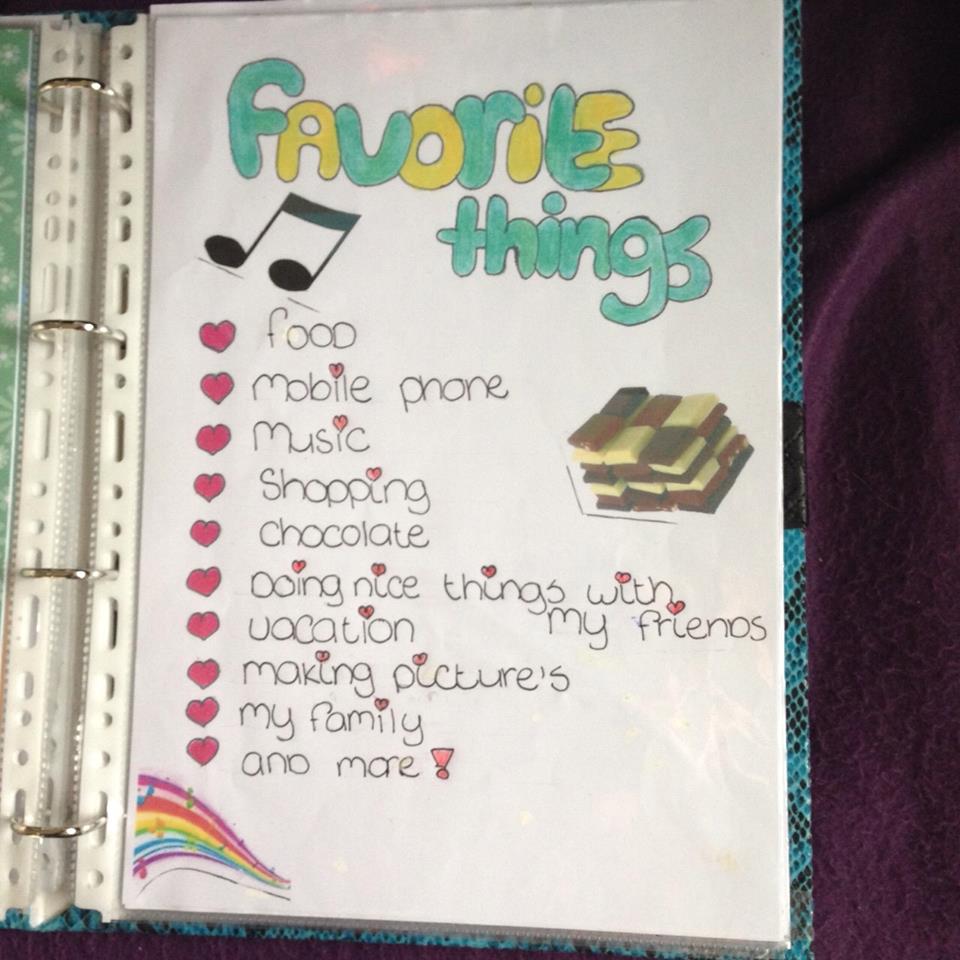 Favorite
things
food
mobile phone
Music
Shopping
chocolate
Doing nice things with
my friends
vacation
making picture's
my family
and more!